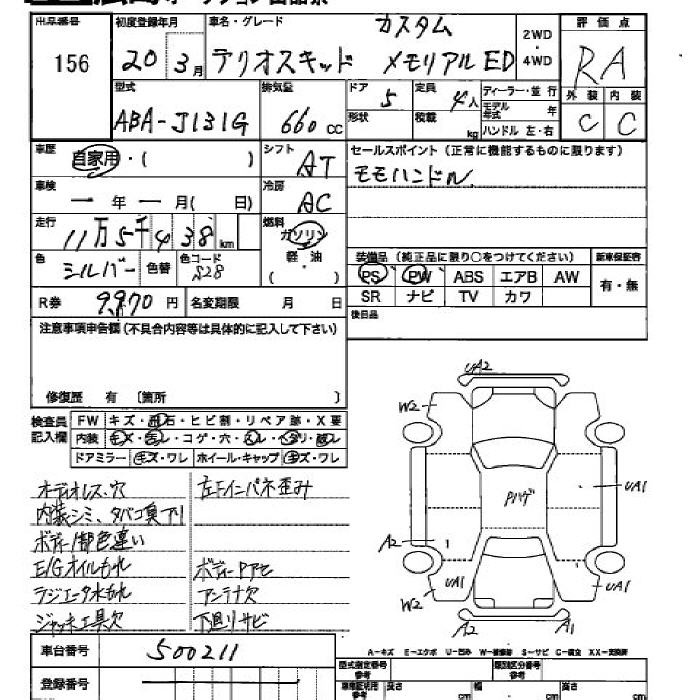 出品番号 初度登録年月 車名・グレード カスタム 2WD・4WD 評価点
156 20年3月 テリオスキッド メモリアルED RA
型式 排気量 ドア 定員 ディーラー・並行 外装 内装
ABA-J131G 660cc 5 4人 モデル年式 年 C C
形状 積載 kg ハンドル 左・右
車歴 自家用・( ) シフト AT セールスポイント(正常に機能するものに限ります)
モモハンドル
車検 一年一月( 日) 冷房 AC
走行 11万5千438km 燃料 ガソリン 軽・油 ( )
色 シルバー 色替 色コード S28
装備品(純正品に限り○をつけてください) 新車保証書
PS PW ABS エアB AW 有・無
SR ナビ TV カワ
R券 9,970円 名変期限 月 日 後日品
注意事項申告欄(不具合内容等は具体的に記入して下さい)
修復歴 有 〔箇所 〕
検査員記入欄 FW キズ・飛石・ヒビ割・リペア跡・X要
内装 キメ・コゲ・穴・
ドアミラー キズ・ワレ ホイール・キャップ キズ・ワレ
オーディオレス、穴 左Fインパネ歪み
内装シミ、タバコ臭
ボディ1部色違い
E/Gオイルもれ ボディーPアセ
ラジエータ水もれ アンテナ欠
ジャッキ工具欠 下廻りサビ
UA2
W2
Pハゲ
UA1
A2
UA1 UA1
W2
A2 A1
A-キズ E-エクボ U-凹み W-補修跡 S-サビ C-腐食 XX-交換済
車台番号 500211
登録番号
型式指定番号 参考 類別区分番号 参考
車庫証明用 参考 長さ cm 幅 cm 高さ cm